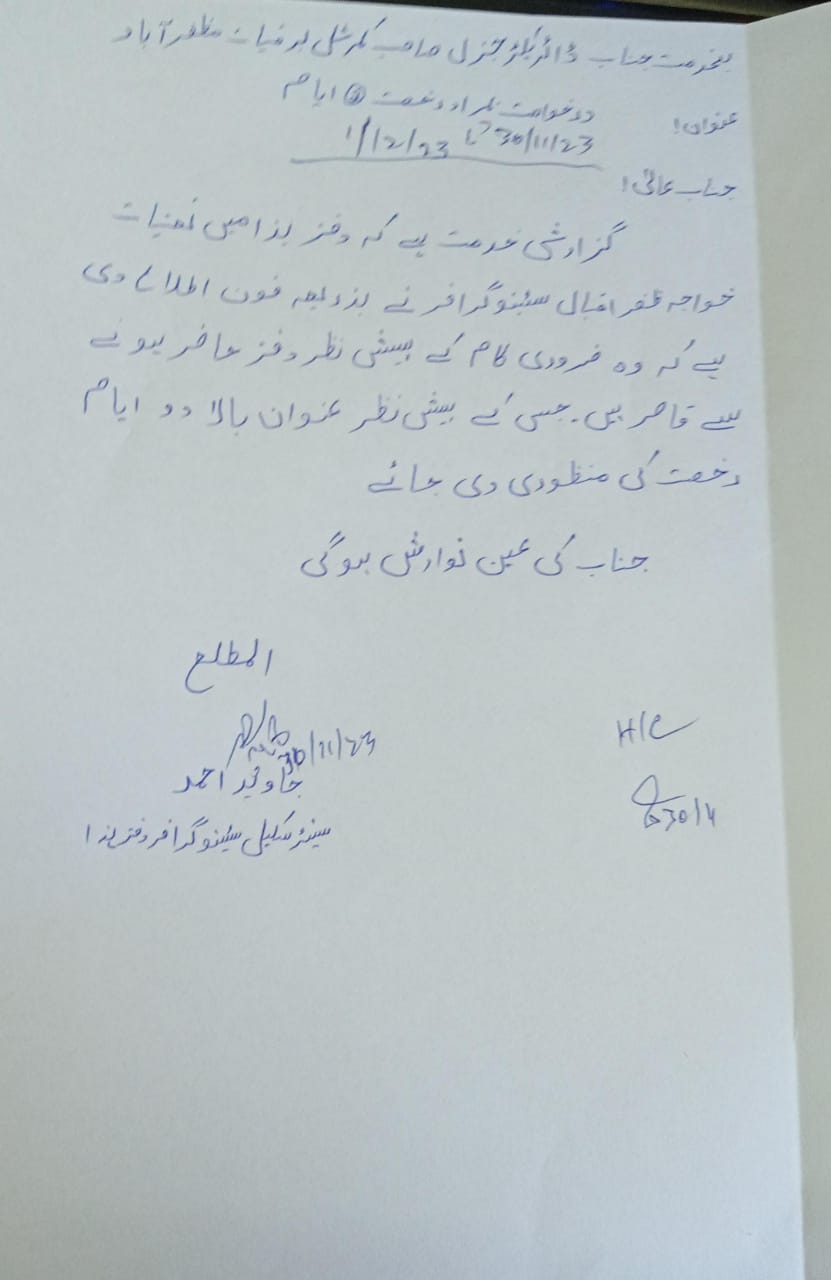 بخدمت جناب ڈائریکٹر جنرل صاحب کمرشل برقیات مظفرآباد
عنوان! درخواست بمراد رخصت 2 ایام
30/11/23 تا 1/12/23
جناب عالی!
گزارش خدمت ہے کہ دفتر ہذا میں تعینات
خواجہ ظفر اقبال سٹینوگرافر نے بذریعہ فون اطلاع دی
ہے کہ وہ ضروری کام کے پیش نظر دفتر حاضر ہونے
سے قاصر ہیں۔ جس کے پیش نظر عنوان بالا دو ایام
رخصت کی منظوری دی جائے
جناب کی عین نوازش ہوگی
المطلع
30/11/23
جاوید احمد
سینئر سکیل سٹینوگرافر دفتر ہذا
H/C
30/11